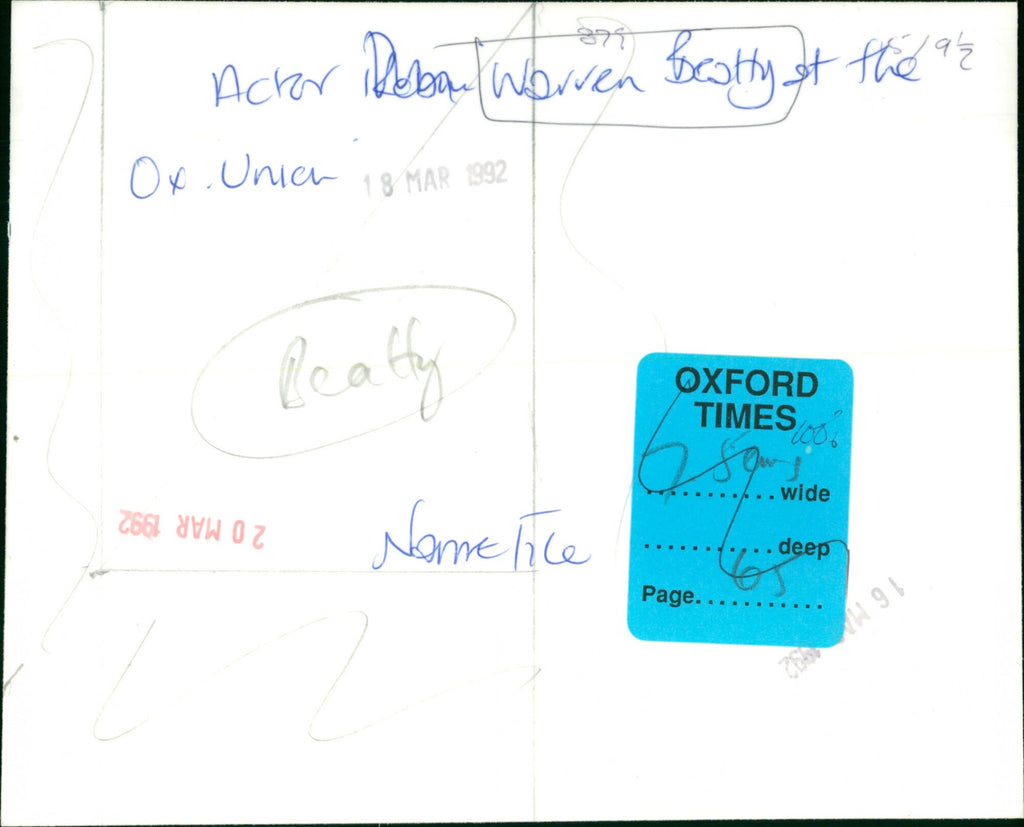 879
Actor Warren Beatty at the 5/9½
Ox. Union 18 MAR 1992
Beatty
OXFORD
TIMES
100%
............wide
............deep
65
Page............
20 MAR 1992
Name File
16 MAR 1992